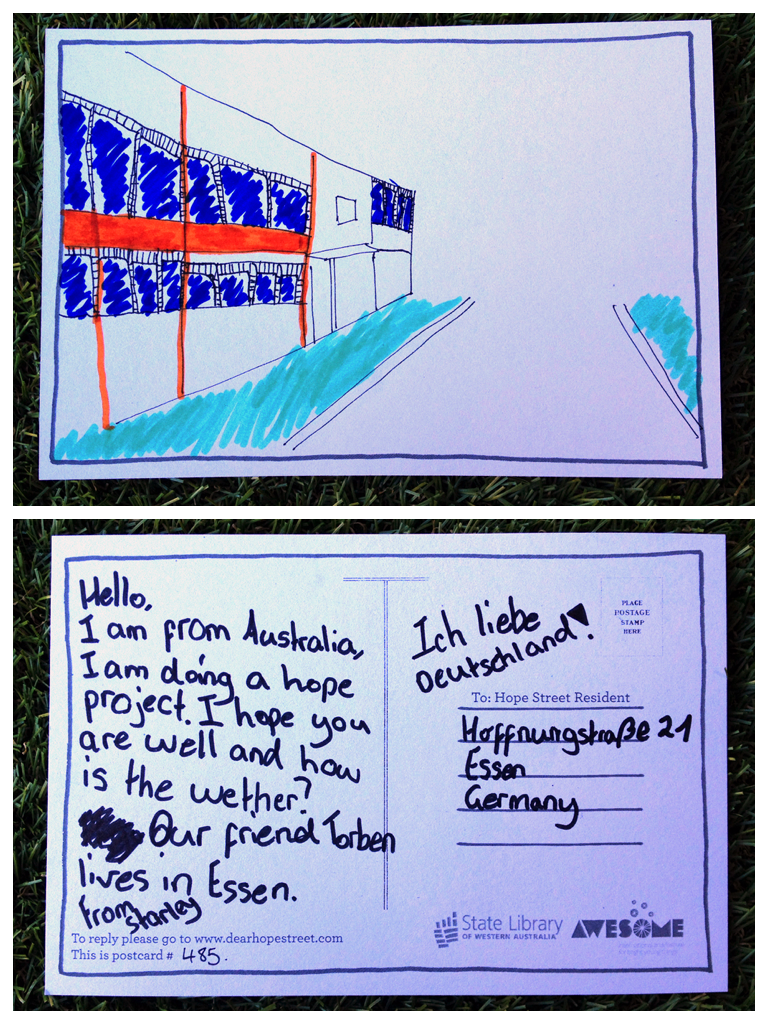 Hello,
I am from Australia,
I am doing a hope
project. I hope you
are well and how
is the wether?
Our friend Torben
lives in Essen.
From Starley
To reply please go to www.dearhopestreet.com
This is postcard # 485.
Ich liebe
Deutschland!
PLACE
POSTAGE
STAMP
HERE
To: Hope Street Resident
Hoffnungstraße 21
Essen
Germany
State Library
OF WESTERN AUSTRALIA
AWESOME